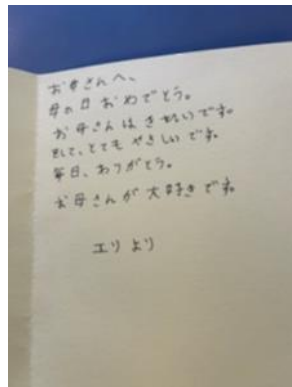 お母さんへ、
母の日おめでとう。
お母さんはきれいです。
そして、とてもやさしいです。
毎日、ありがとう。
お母さんが大好きです。
エリより